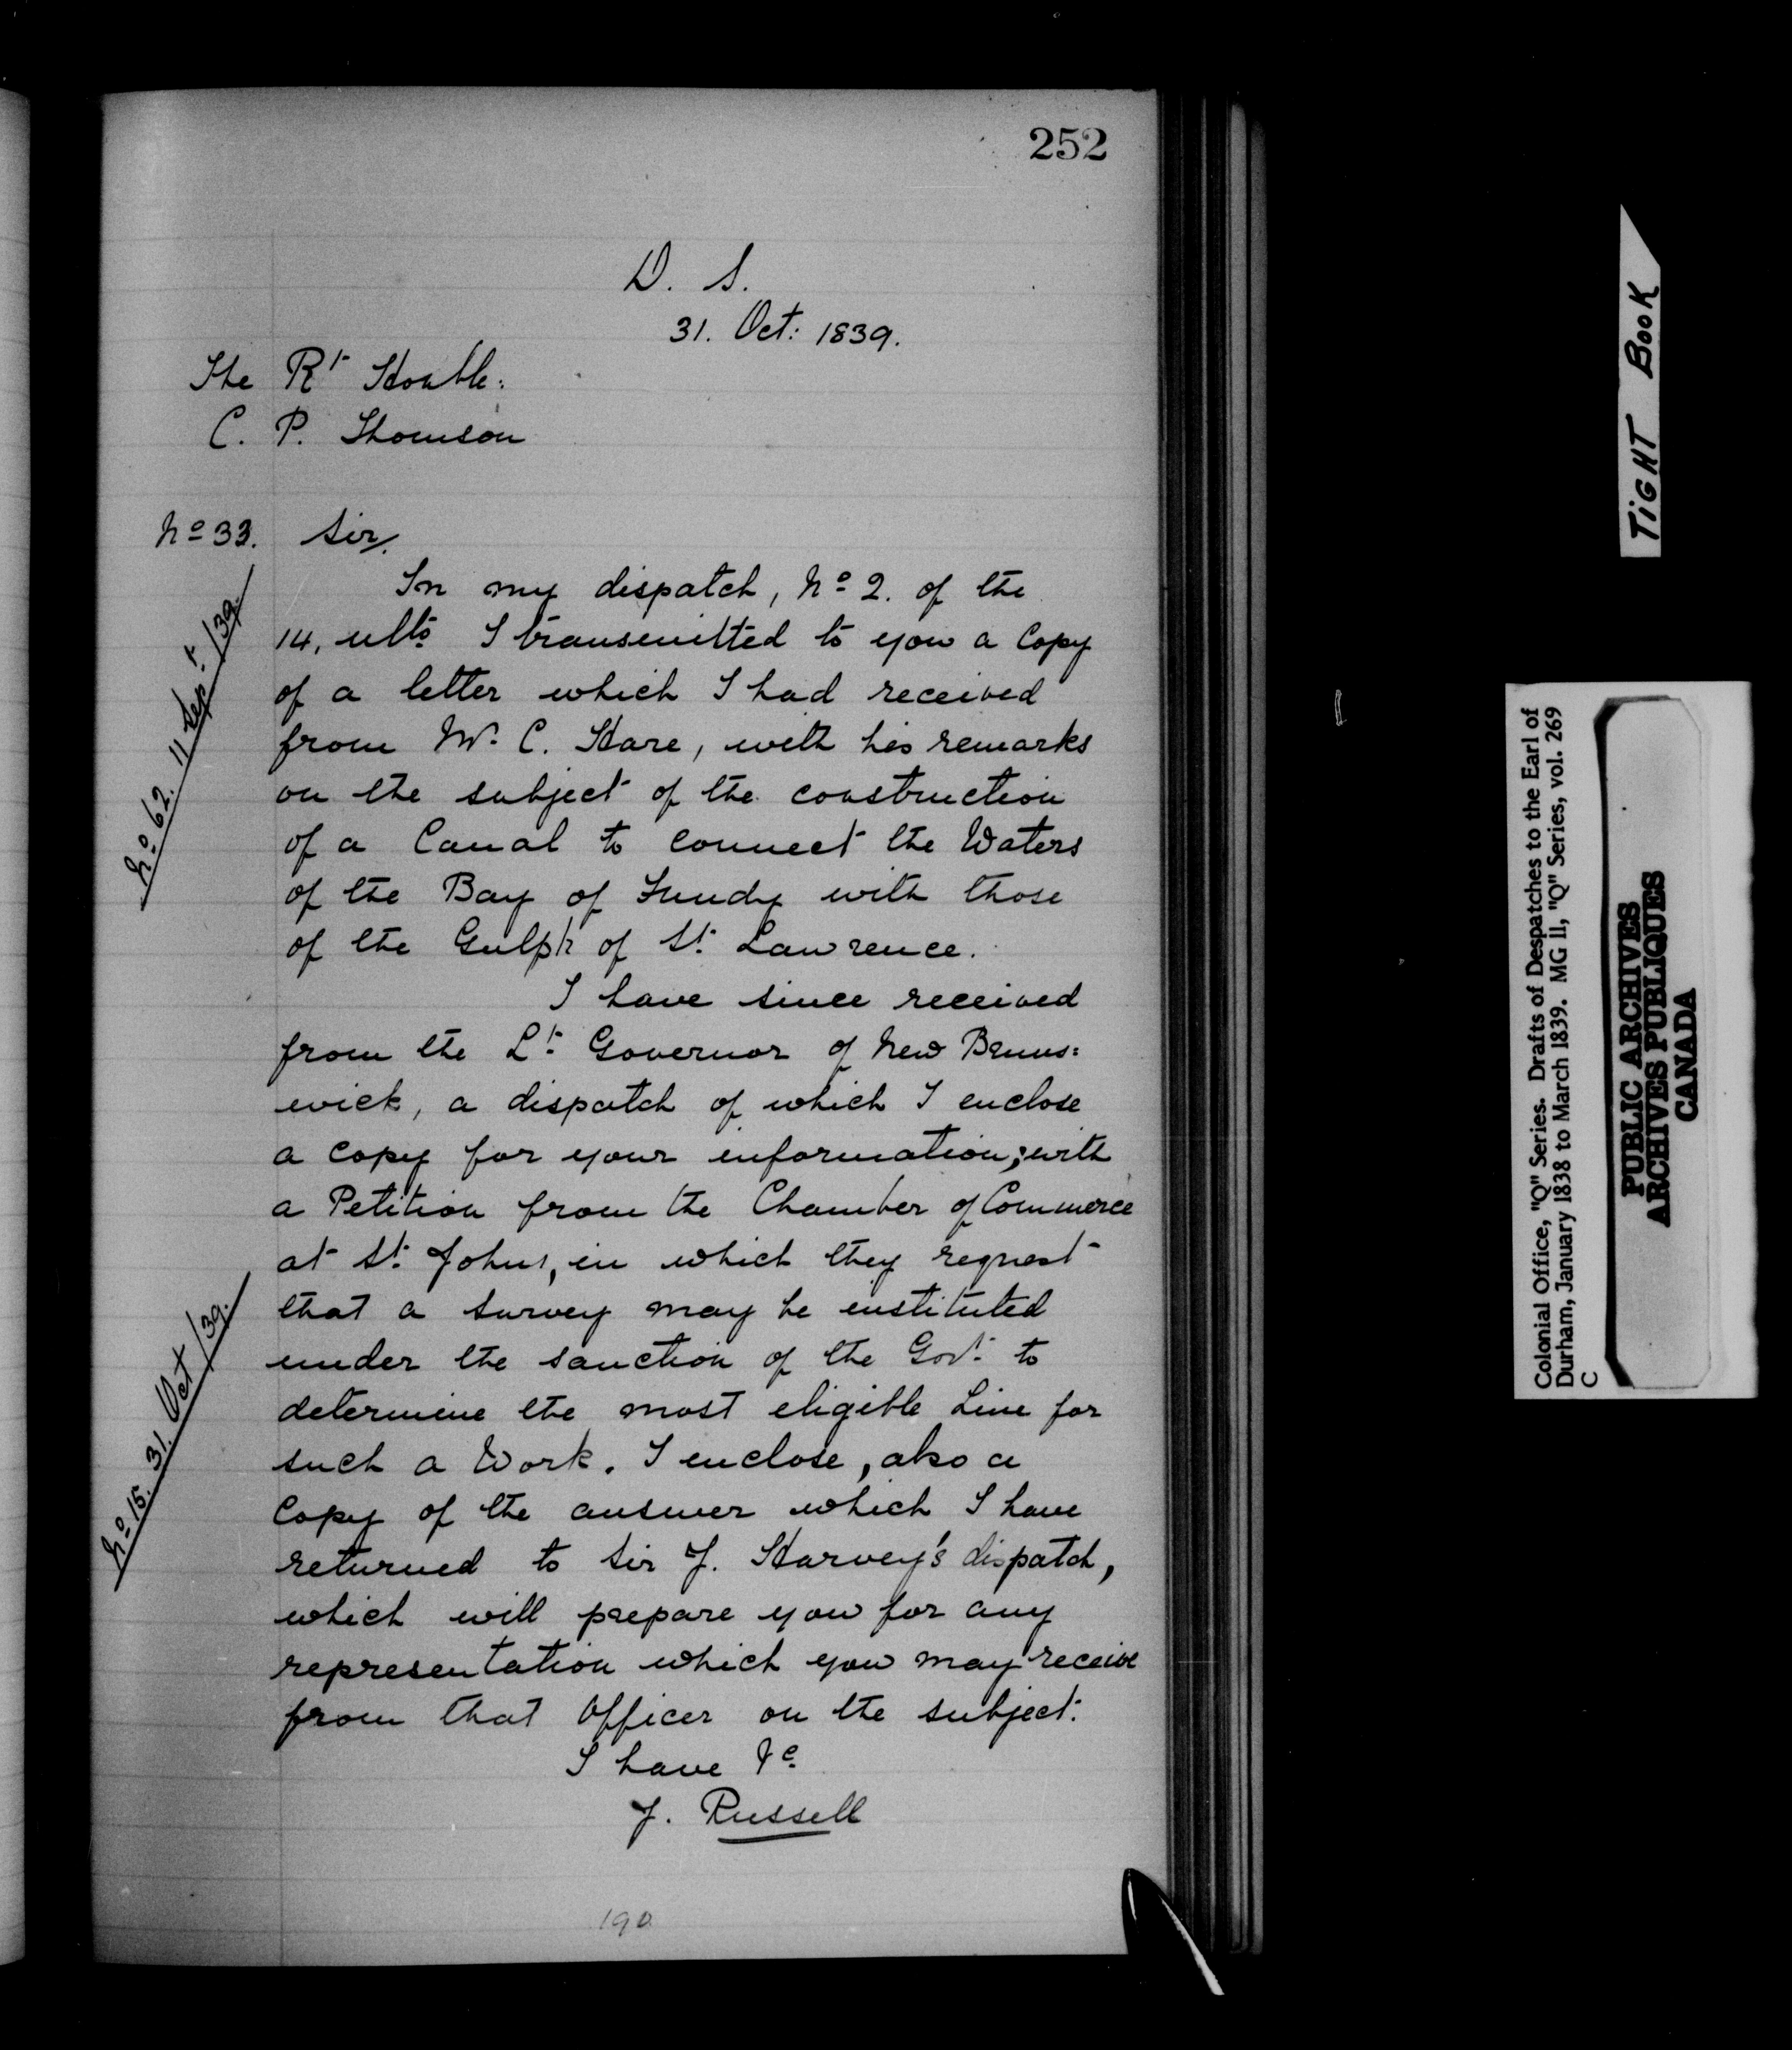 252
D. S.
31. Oct: 1839.
The Rt Honble:
C. P. Thomson
No 33. Sir,
In my dispatch, No 2. of the
14, ulto I transmitted to you a Copy
of a letter which I had received
from Mr. C. Hare, with his remarks
on the subject of the construction
of a Canal to connect the Waters
of the Bay of Fundy with those
of the Gulph of St. Lawrence.
I have since received
from the Lt. Governor of New Bruns:
wick, a dispatch of which I enclose
a Copy for your information; with
a Petition from the Chamber of Commerce
at St. Johns, in which they request
that a Survey may be instituted
under the sanction of the Govt. to
determine the most eligible Line for
such a Work. I enclose, also a
Copy of the answer which I have
returned to Sir J. Harvey's dispatch,
which will prepare you for any
representation which you may receive
from that Officer on the subject.
I have &c.
J. Russell
190
No. 62. 11 Sept. /39.
No. 15. 31. Oct /39.
TIGHT BOOK
Colonial Office, "Q" Series. Drafts of Despatches to the Earl of
Durham, January 1838 to March 1839. MG 11, "Q" Series, vol. 269
C
PUBLIC ARCHIVES
ARCHIVES PUBLIQUES
CANADA